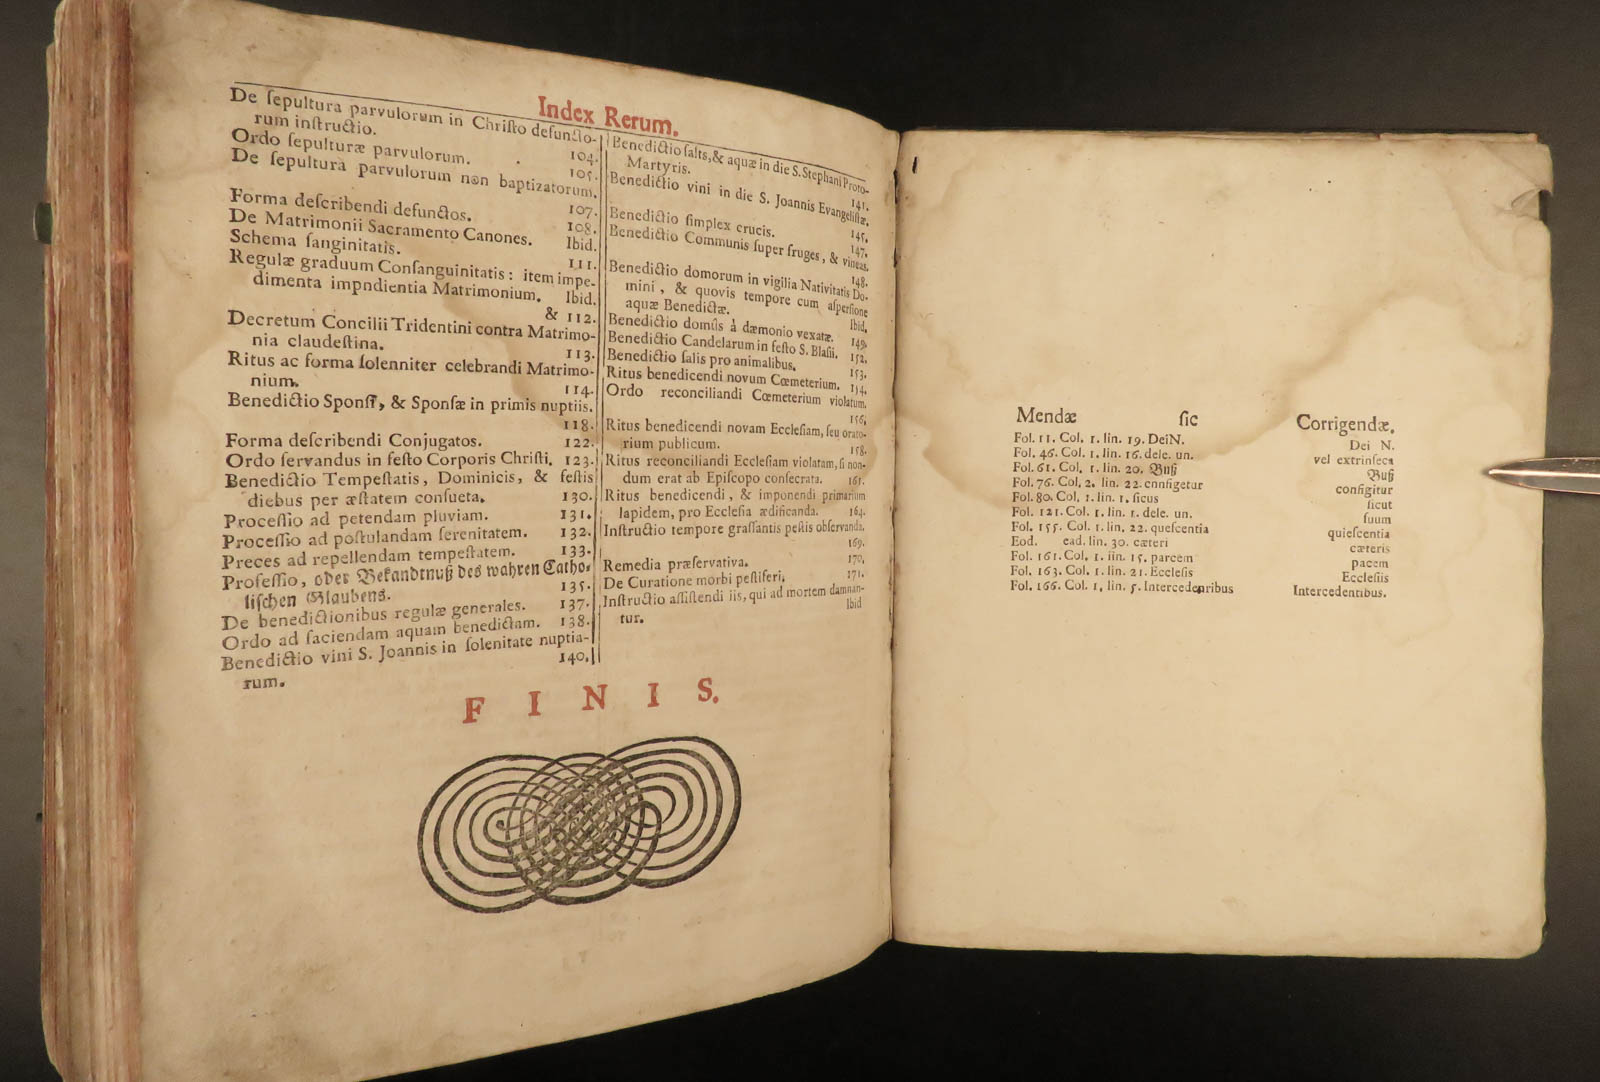 Index Rerum.
De ſepultura parvulorum in Chriſto defuncto-
rum inſtructio. 104.
Ordo ſepulturæ parvulorum. 105.
De ſepultura parvulorum non baptizatorum.
107.
Forma deſcribendi defunctos. 108.
De Matrimonii Sacramento Canones. Ibid.
Schema ſanginitatis. 111.
Regulæ graduum Conſanguinitatis: item impe-
dimenta impndientia Matrimonium. Ibid.
& 112.
Decretum Concilii Tridentini contra Matrimo-
nia claudeſtina. 113.
Ritus ac forma ſolenniter celebrandi Matrimo-
nium. 114.
Benedictio Sponſi, & Sponſæ in primis nuptiis.
118.
Forma deſcribendi Conjugatos. 122.
Ordo ſervandus in feſto Corporis Chriſti. 123.
Benedictio Tempeſtatis, Dominicis, & feſtis
diebus per æſtatem conſueta. 130.
Proceſſio ad petendam pluviam. 131.
Proceſſio ad poſtulandam ſerenitatem. 132.
Preces ad repellendam tempeſtatem. 133.
Profeſſio, oder Bekandtnuß des wahren Catho-
liſchen Glaubens. 135.
De benedictionibus regulæ generales. 137.
Ordo ad faciendam aquam benedictam. 138.
Benedictio vini S. Joannis in ſolenitate nuptia-
rum. 140.
Benedictio ſalis, & aquæ in die S. Stephani Proto-
Martyris. 141.
Benedictio vini in die S. Joannis Evangeliſtæ.
145.
Benedictio ſimplex crucis. 147.
Benedictio Communis ſuper fruges, & vineas.
148.
Benedictio domorum in vigilia Nativitatis Do-
mini, & quovis tempore cum aſperſione
aquæ Benedictæ. Ibid.
Benedictio domûs à dæmonio vexatæ. 149.
Benedictio Candelarum in feſto S. Blaſii. 152.
Benedictio ſalis pro animalibus. 153.
Ritus benedicendi novum Cœmeterium. 154.
Ordo reconciliandi Cœmeterium violatum.
156.
Ritus benedicendi novam Eccleſiam, ſeu orato-
rium publicum. 158.
Ritus reconciliandi Eccleſiam violatam, ſi non-
dum erat ab Epiſcopo conſecrata. 161.
Ritus benedicendi, & imponendi primarium
lapidem, pro Eccleſia ædificanda. 164.
Inſtructio tempore graſſantis peſtis obſervanda.
169.
Remedia præſervativa. 170.
De Curatione morbi peſtiferi. 171.
Inſtructio aſſiſtendi iis, qui ad mortem damnan-
tur. Ibid
FINIS.
Mendæ ſic Corrigendæ.
Fol. 11. Col. 1. lin. 19. DeiN. Dei N.
Fol. 46. Col. 1. lin. 16. dele. un. vel extrinſeca
Fol. 61. Col. 1. lin. 20. Buß Buß
Fol. 76. Col. 2. lin. 22. configetur configitur
Fol. 80. Col. 1. lin. 1. ſicus ſicut
Fol. 121. Col. 1. lin. 1. dele. un. ſuum
Fol. 155. Col. 1. lin. 22. queſcentia quieſcentia
Eod. ead. lin. 30. cæteri cæteris
Fol. 161. Col. 1. lin. 15. parcem pacem
Fol. 163. Col. 1. lin. 21. Eccleſis Eccleſiis
Fol. 166. Col. 1. lin. 5. Intercedenribus Intercedentibus.